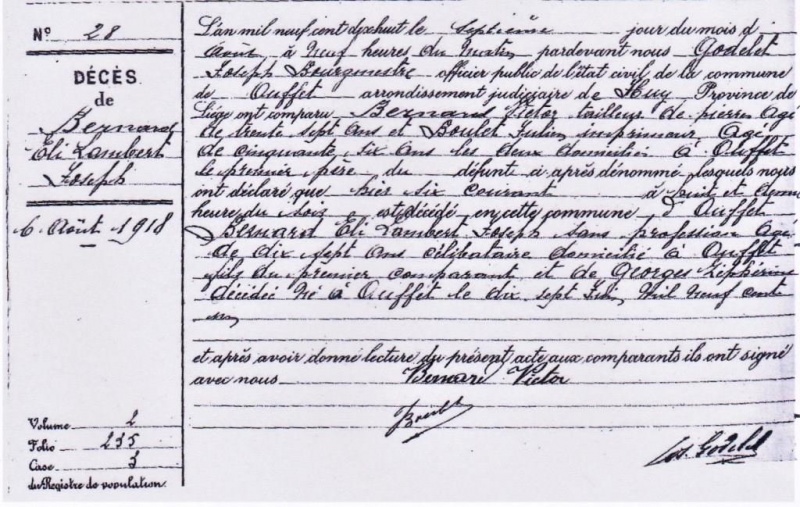 N° 28
DÉCÈS
de
Bernard
Eli Lambert
Joseph
6 Août 1918
Volume 2
Folio 235
Case 3
du Registre de population.
L'an mil neuf cent dixhuit le septième jour du mois d
Août à neuf heures du matin pardevant nous Godelet
Joseph Bourgmestre officier public de l'état civil de la commune
de Ouffet arrondissement judiciaire de Huy Province de
Liége ont comparu Bernard Victor tailleur de pierres Agé
de trente sept ans et Boulet Julien imprimeur Agé
de cinquante six ans les deux domiciliés à Ouffet
le premier père du défunt ci après dénommé lesquels nous
ont déclaré que hier six courant à huit et demi
heure du soir est décédé en cette commune d'Ouffet
Bernard Eli Lambert Joseph sans profession Agé
de dix sept ans célibataire domicilié à Ouffet
fils du premier comparant et de Georges Zéphérine
décédée Né à Ouffet le dix sept mil neuf cent
un
et après avoir donné lecture du présent acte aux comparants ils ont signé
avec nous Bernard Victor
Boulet
Jos. Godelet